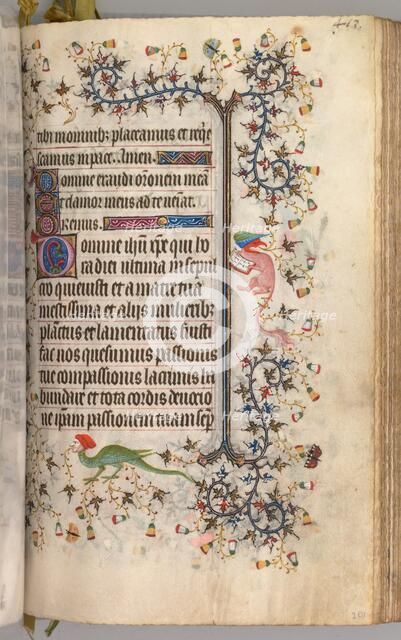 413.
tibi moriamur placeamus et req̄e
scamus in pace. Amen.
Domine exaudi orōnem meā
Et clamor meus ad te ueniat.
Oremus.
Domine ih̄u xp̄e qui ho
ra diei ultima in sepul
cro quieuisti et a matre tua
mestissima et aliis mulieribȝ
planctus et lamentatus fuisti
fac nos quesumus passionis
tue compassionis lacrimis ha
bundare et tota cordis deuocio
ne ip̄am passionem tuam sep
201
Heritage
Heritage
Heritage
Heritage
Heritage